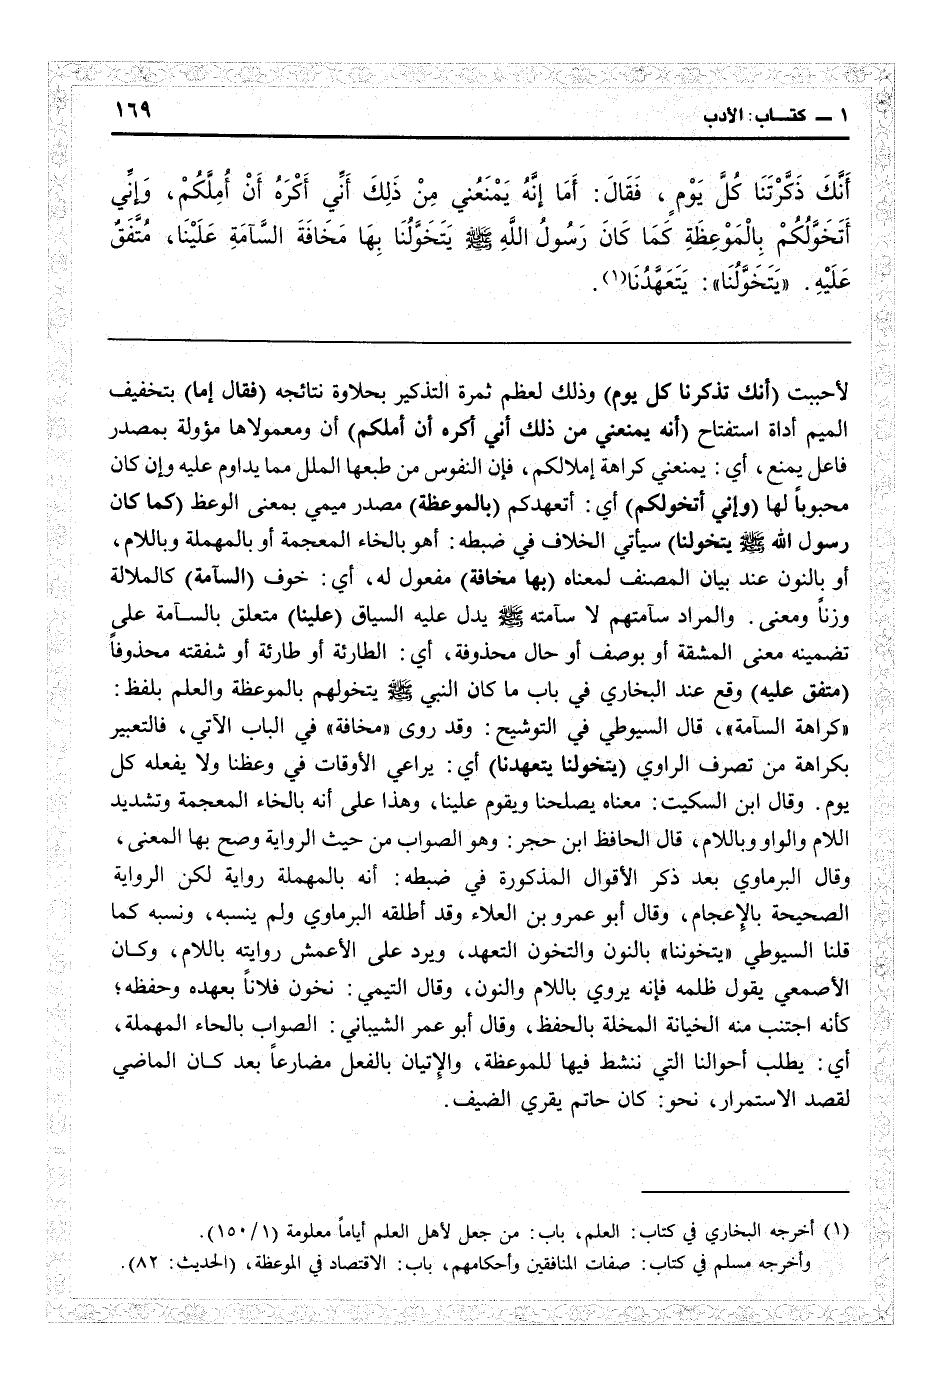 ١ ــ كتــاب: الأدب
١٦٩
أَنَّكَ ذَكَّرْتَنَا كُلَّ يَوْمٍ، فَقَالَ: أَمَا إِنَّهُ يَمْنَعُنِي مِنْ ذَلِكَ أَنِّي أَكْرَهُ أَنْ أُمِلَّكُمْ، وَإِنِّي
أَتَخَوَّلُكُمْ بِالْمَوْعِظَةِ كَمَا كَانَ رَسُولُ اللَّهِ ﷺ يَتَخَوَّلُنَا بِهَا مَخَافَةَ السَّآمَةِ عَلَيْنَا، مُتَّفَقٌ
عَلَيْهِ. «يَتَخَوَّلُنَا»: يَتَعَهَّدُنَا(١).
لأحببت (أنك تذكرنا كل يوم) وذلك لعظم ثمرة التذكير بحلاوة نتائجه (فقال إما) بتخفيف
الميم أداة استفتاح (أنه يمنعني من ذلك أني أكره أن أملكم) أن ومعمولاها مؤولة بمصدر
فاعل يمنع، أي: يمنعني كراهة إملالكم، فإن النفوس من طبعها الملل مما يداوم عليه وإن كان
محبوباً لها (وإني أتخولكم) أي: أتعهدكم (بالموعظة) مصدر ميمي بمعنى الوعظ (كما كان
رسول الله ﷺ يتخولنا) سيأتي الخلاف في ضبطه: أهو بالخاء المعجمة أو بالمهملة وباللام،
أو بالنون عند بيان المصنف لمعناه (بها مخافة) مفعول له، أي: خوف (السآمة) كالملالة
وزناً ومعنى. والمراد سآمتهم لا سآمته ﷺ يدل عليه السياق (علينا) متعلق بالسآمة على
تضمينه معنى المشقة أو بوصف أو حال محذوفة، أي: الطارئة أو طارئة أو شفقته محذوفاً
(متفق عليه) وقع عند البخاري في باب ما كان النبي ﷺ يتخولهم بالموعظة والعلم بلفظ:
«كراهة السآمة»، قال السيوطي في التوشيح: وقد روى «مخافة» في الباب الآتي، فالتعبير
بكراهة من تصرف الراوي (يتخولنا يتعهدنا) أي: يراعي الأوقات في وعظنا ولا يفعله كل
يوم. وقال ابن السكيت: معناه يصلحنا ويقوم علينا، وهذا على أنه بالخاء المعجمة وتشديد
اللام والواو وباللام، قال الحافظ ابن حجر: وهو الصواب من حيث الرواية وصح بها المعنى،
وقال البرماوي بعد ذكر الأقوال المذكورة في ضبطه: أنه بالمهملة رواية لكن الرواية
الصحيحة بالإعجام، وقال أبو عمرو بن العلاء وقد أطلقه البرماوي ولم ينسبه، ونسبه كما
قلنا السيوطي «يتخوننا» بالنون والتخون التعهد، ويرد على الأعمش روايته باللام، وكان
الأصمعي يقول ظلمه فإنه يروي باللام والنون، وقال التيمي: نخون فلاناً بعهده وحفظه؛
كأنه اجتنب منه الخيانة المخلة بالحفظ، وقال أبو عمر الشيباني: الصواب بالحاء المهملة،
أي: يطلب أحوالنا التي ننشط فيها للموعظة، والإتيان بالفعل مضارعاً بعد كـان الماضي
لقصد الاستمرار، نحو: كان حاتم يقري الضيف.
(١) أخرجه البخاري في كتاب: العلم، باب: من جعل لأهل العلم أياماً معلومة (١/١٥٠).
وأخرجه مسلم في كتاب: صفات المنافقين وأحكامهم، باب: الاقتصاد في الموعظة، (الحديث: ٨٢).